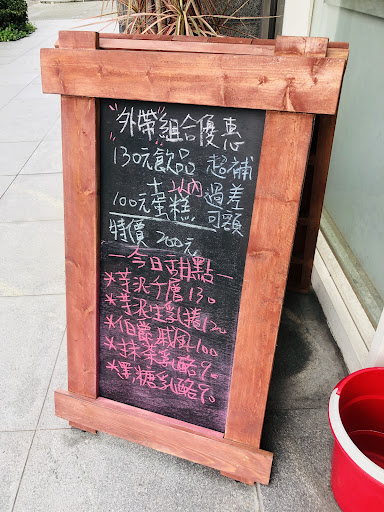 外帶組合優惠
130元飲品 超過 補差額
+ 以內 可
100元蛋糕
特價 200元
—今日甜點—
*芋泥千層 130
*芋泥生乳捲 120
*伯爵戚風 100
*抹茶乳酪 90
*黑糖乳酪 90